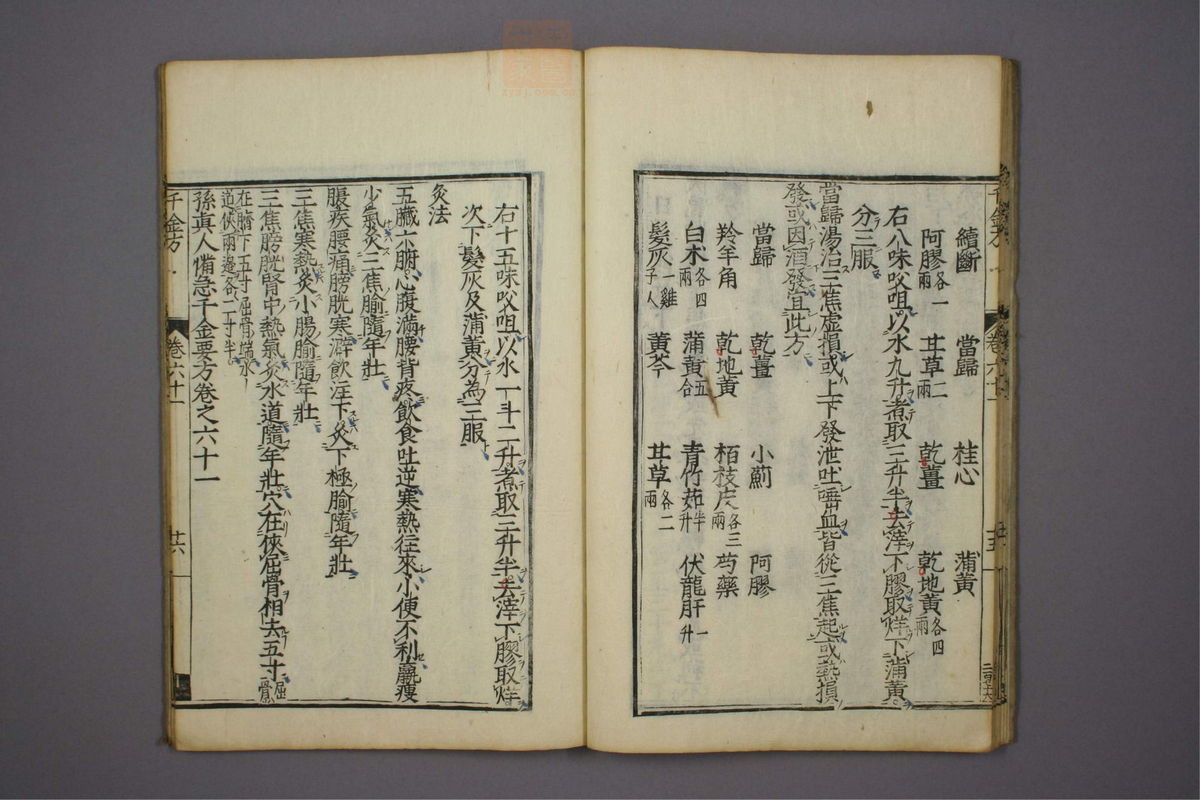 續斷 當歸 桂心 蒲黃
阿膠各一兩 甘草二兩 乾薑 乾地黃各四兩
右八味㕮咀以水九升煮取三升半去滓下膠取烊下蒲黃
分三服
當歸湯治三焦虛損或上下發泄吐唾血皆從三焦起或熱損
發或因酒發宜此方
當歸 乾薑 小薊 阿膠
羚羊角 乾地黃 栢枝皮各三兩 芍藥
白朮各四兩 蒲黃五合 青竹茹半升 伏龍肝一升
髮灰一雞子大 黃芩 甘草各二兩
右十五味㕮咀以水一斗二升煮取三升半去滓下膠取烊
次下髮灰及蒲黃分為三服
灸法
五臟六腑心腹滿腰背疼飲食吐逆寒熱往來小便不利羸瘦
少氣灸三焦腧隨年壯
脹疾腰痛膀胱寒澼飲注下灸下極腧隨年壯
三焦寒熱灸小腸腧隨年壯
三焦膀胱腎中熱氣灸水道隨年壯穴在俠屈骨相去五寸屈骨
在臍下五寸屈骨端水
道俠兩邊各二寸半
孫真人備急千金要方卷之六十一
千金方 卷六十一 廿六